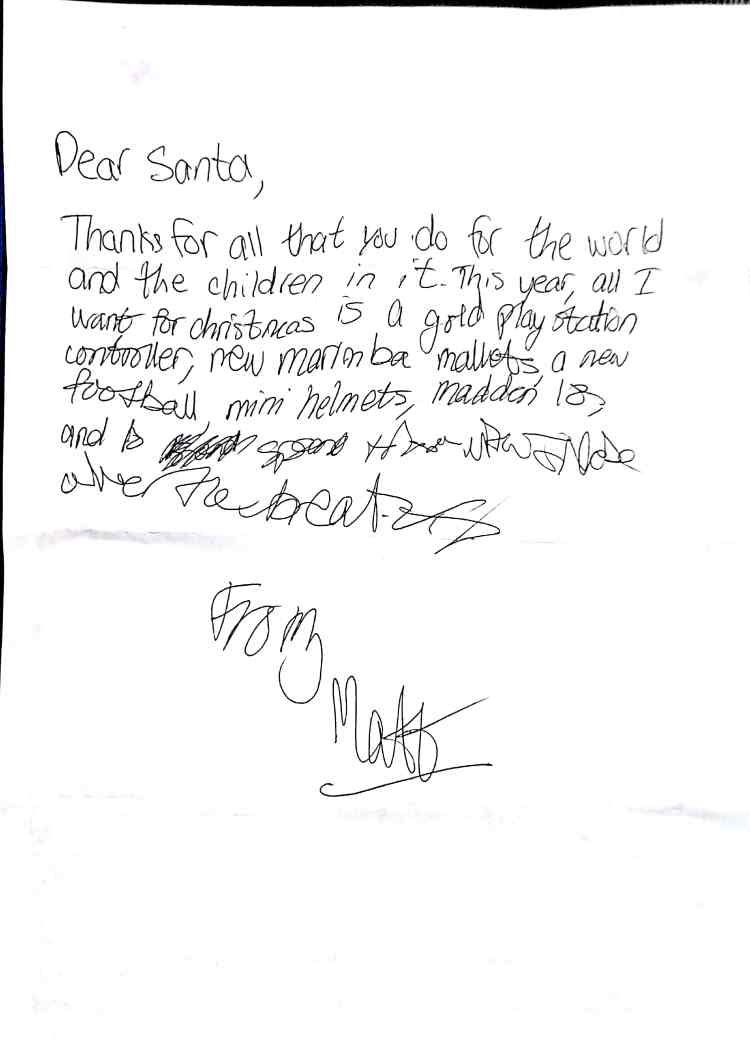 Dear Santa,
Thanks for all that you do for the world
and the children in it. This year, all I
want for christmas is a gold play station
controller, new marimba mallets, a new
football mini helmets, madden 18,
and to spend
the beat
From
Matt